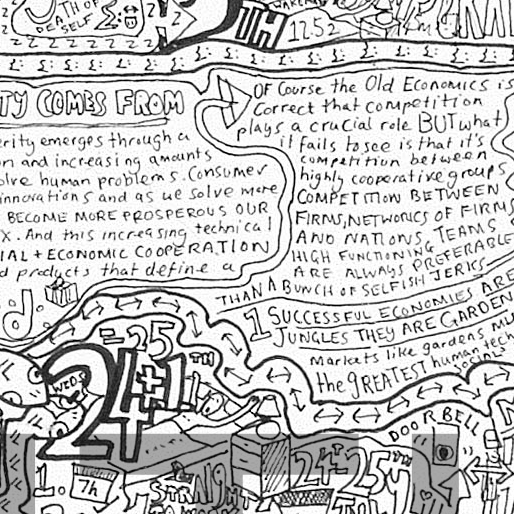 TH OF
DEATH OF
SELF
TH
12.52
TY COMES FROM
erity emerges through a
on and increasing amounts
olve human problems. Consumer
innovations and as we solve more
BECOME MORE PROSPEROUS OUR
X. And this increasing technical
IAL + ECONOMIC COOPERATION
d products that define a
d.
OF COURSE the Old Economics is
Correct that competition
plays a crucial role BUT what
it fails to see is that it's
competition between
highly cooperative groups
COMPETITION BETWEEN
FIRMS, NETWORKS OF FIRMS
AND NATIONS. TEAMS
HIGH FUNCTIONING
ARE ALWAYS PREFERABLE
THAN A BUNCH OF SELFISH JERKS
1 SUCCESSFUL ECONOMIES ARE
JUNGLES THEY ARE GARDEN
Markets like gardens MU
the GREATEST human tech
social
= 25
24+1TH
WEDS
DOOR BELL
1. 7h
STRAIGHT
TO WORK
24TH 25TH
JULY